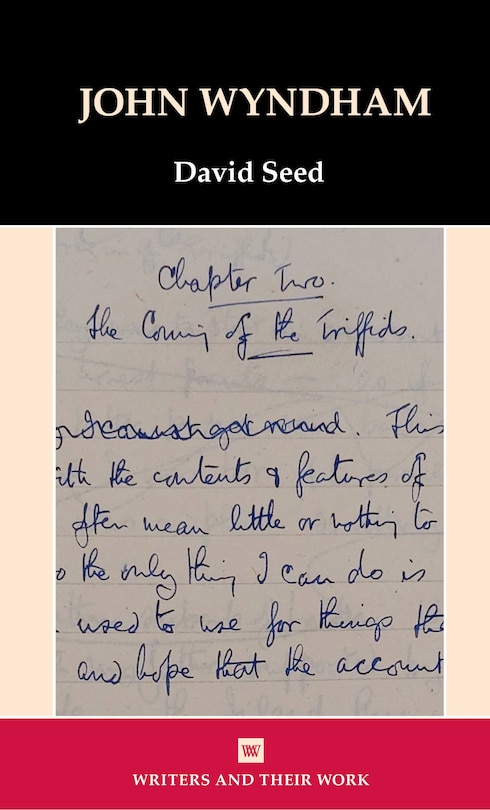 JOHN WYNDHAM
David Seed
Chapter Two.
The Coming of the Triffids.
. This
ith the contents & features of
often mean little or nothing to
o the only thing I can do is
used to use for things the
and hope that the account
W
WRITERS AND THEIR WORK